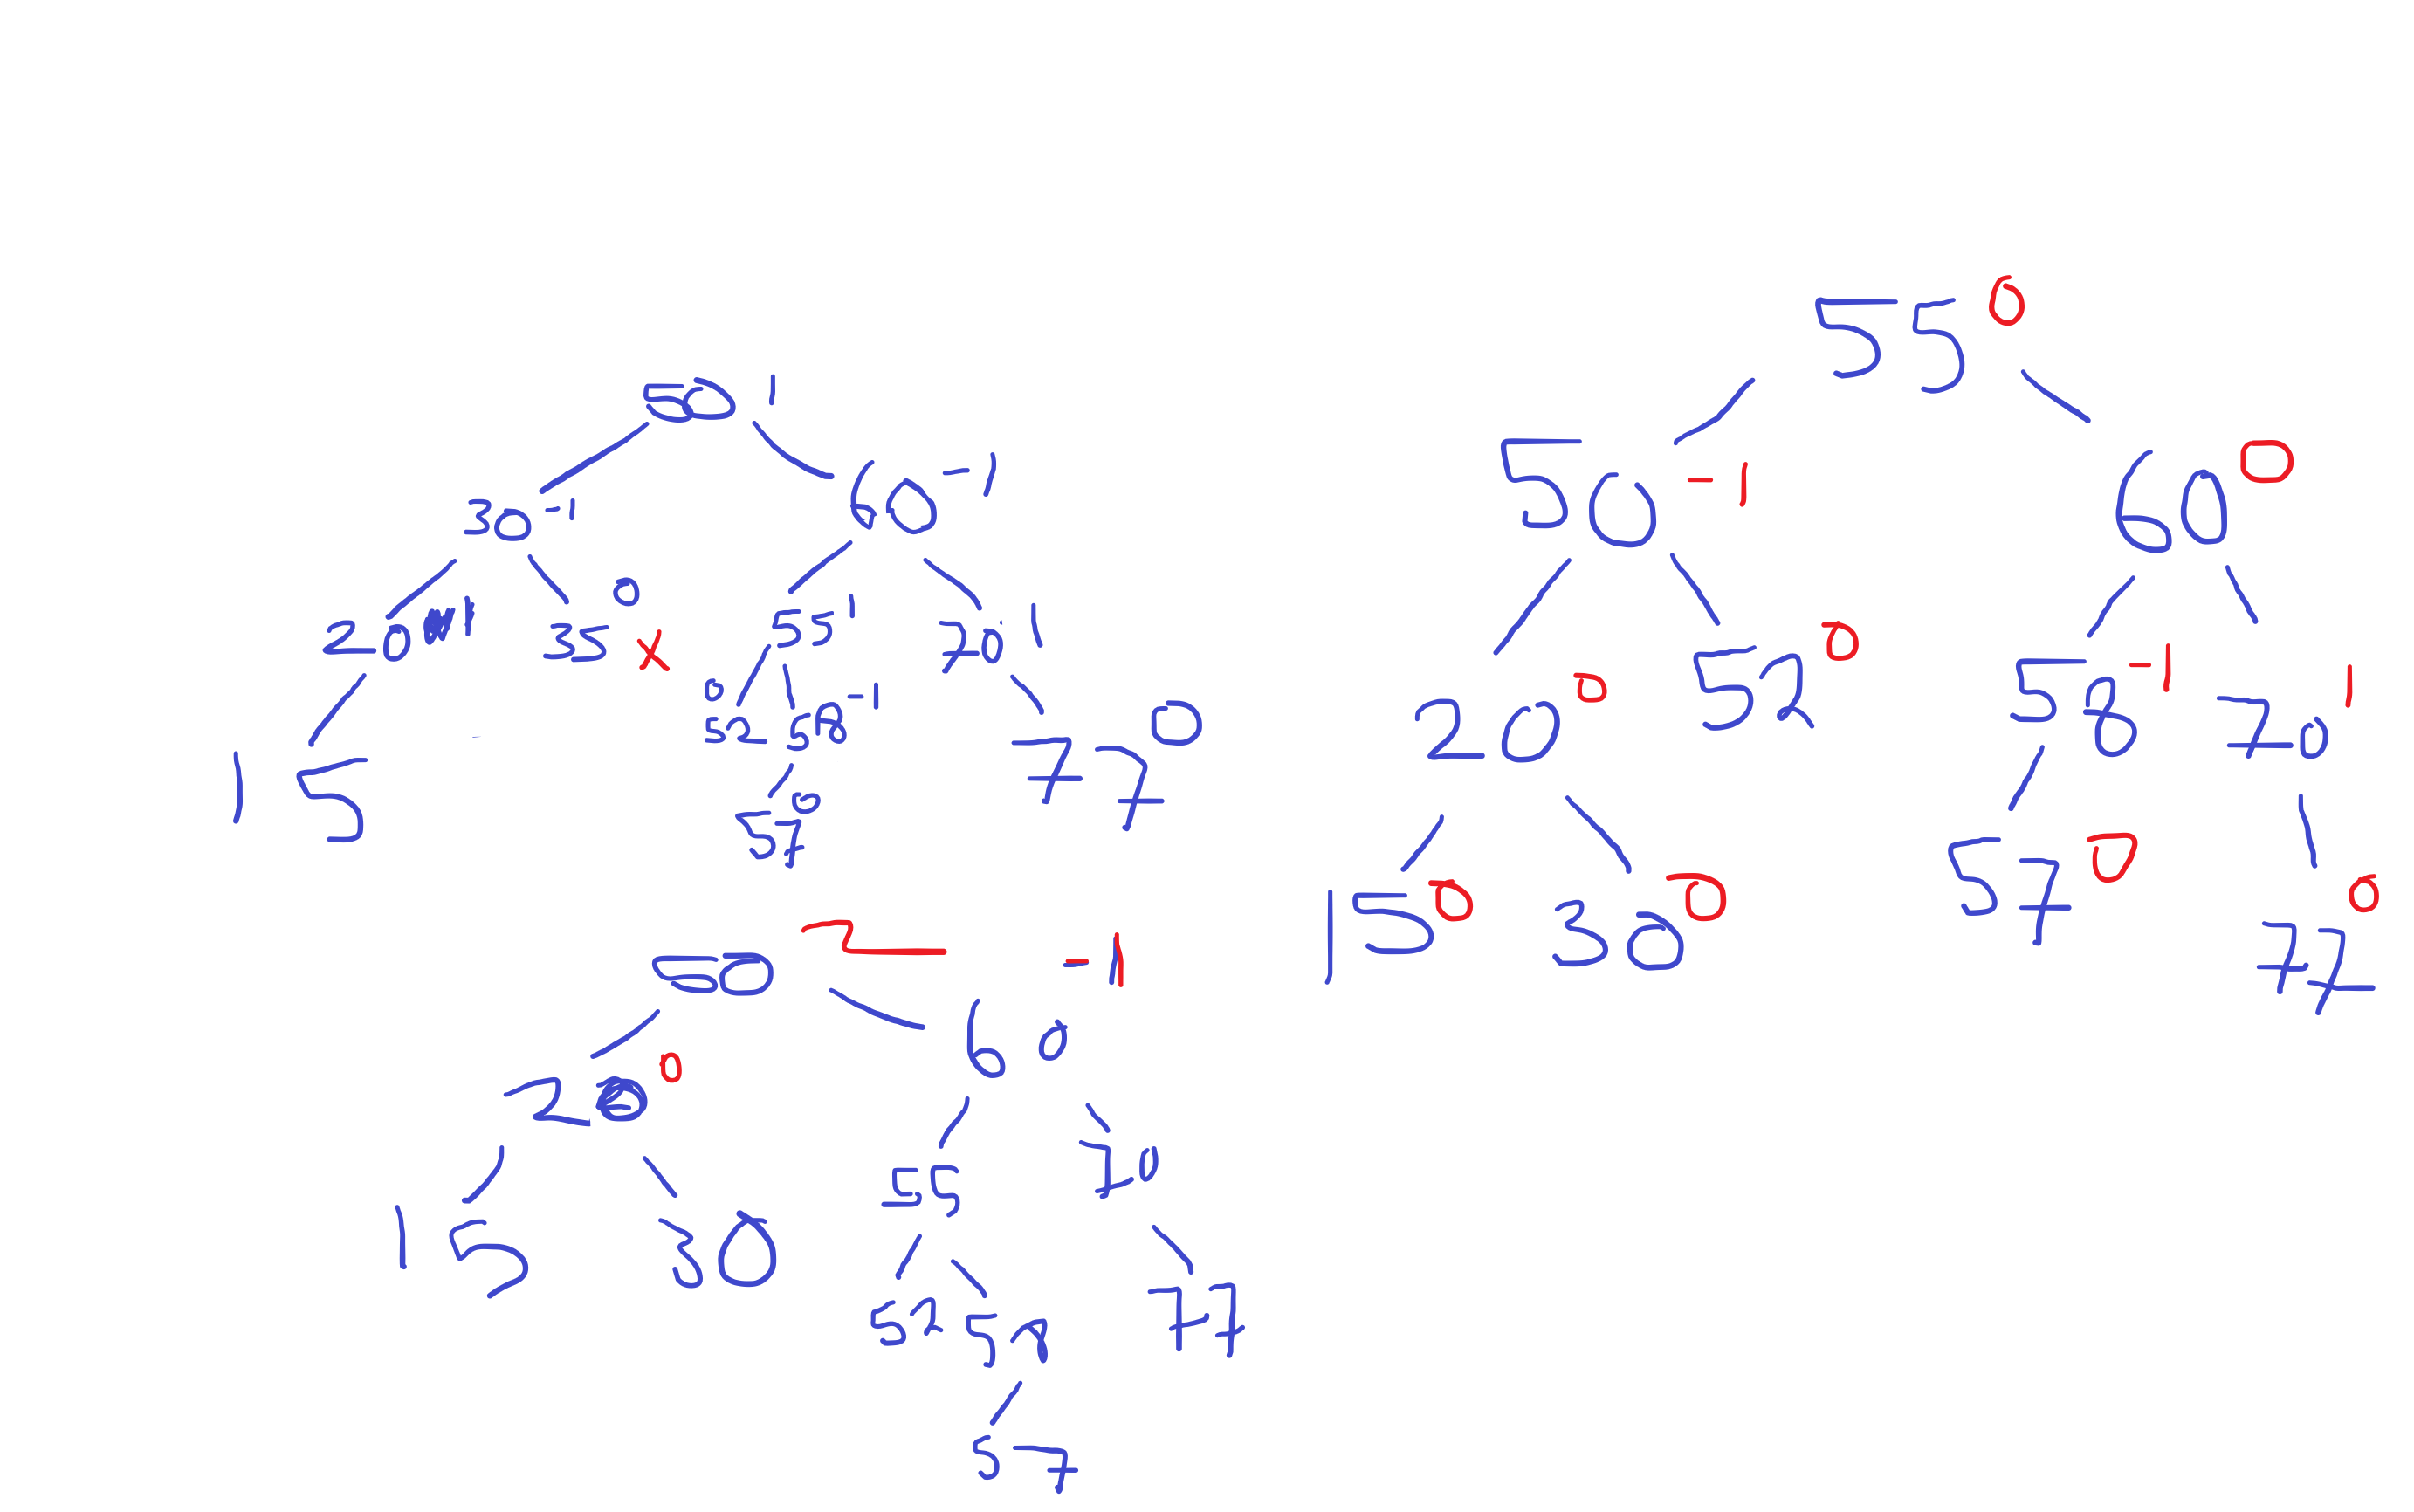 50 1
30 -1 60 -1
20 35 0 x 55 1 70 1
15 0 52 58 -1 77 0
57 0
50 2 60 -1
20 0
15 30 55 70
52 59 77
57
55 0
50 -1 60 0
20 0 52 0 58 -1 70 1
15 0 30 0 57 0 77 0